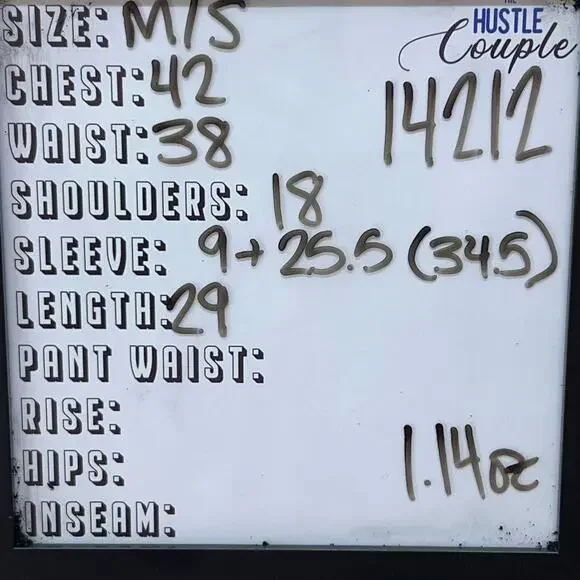 SIZE: M/S
THE
HUSTLE
Couple
CHEST: 42
14212
WAIST: 38
SHOULDERS: 18
SLEEVE: 9+ 25.5 (34.5)
LENGTH: 29
PANT WAIST:
RISE:
HIPS:
1.14oz
INSEAM: